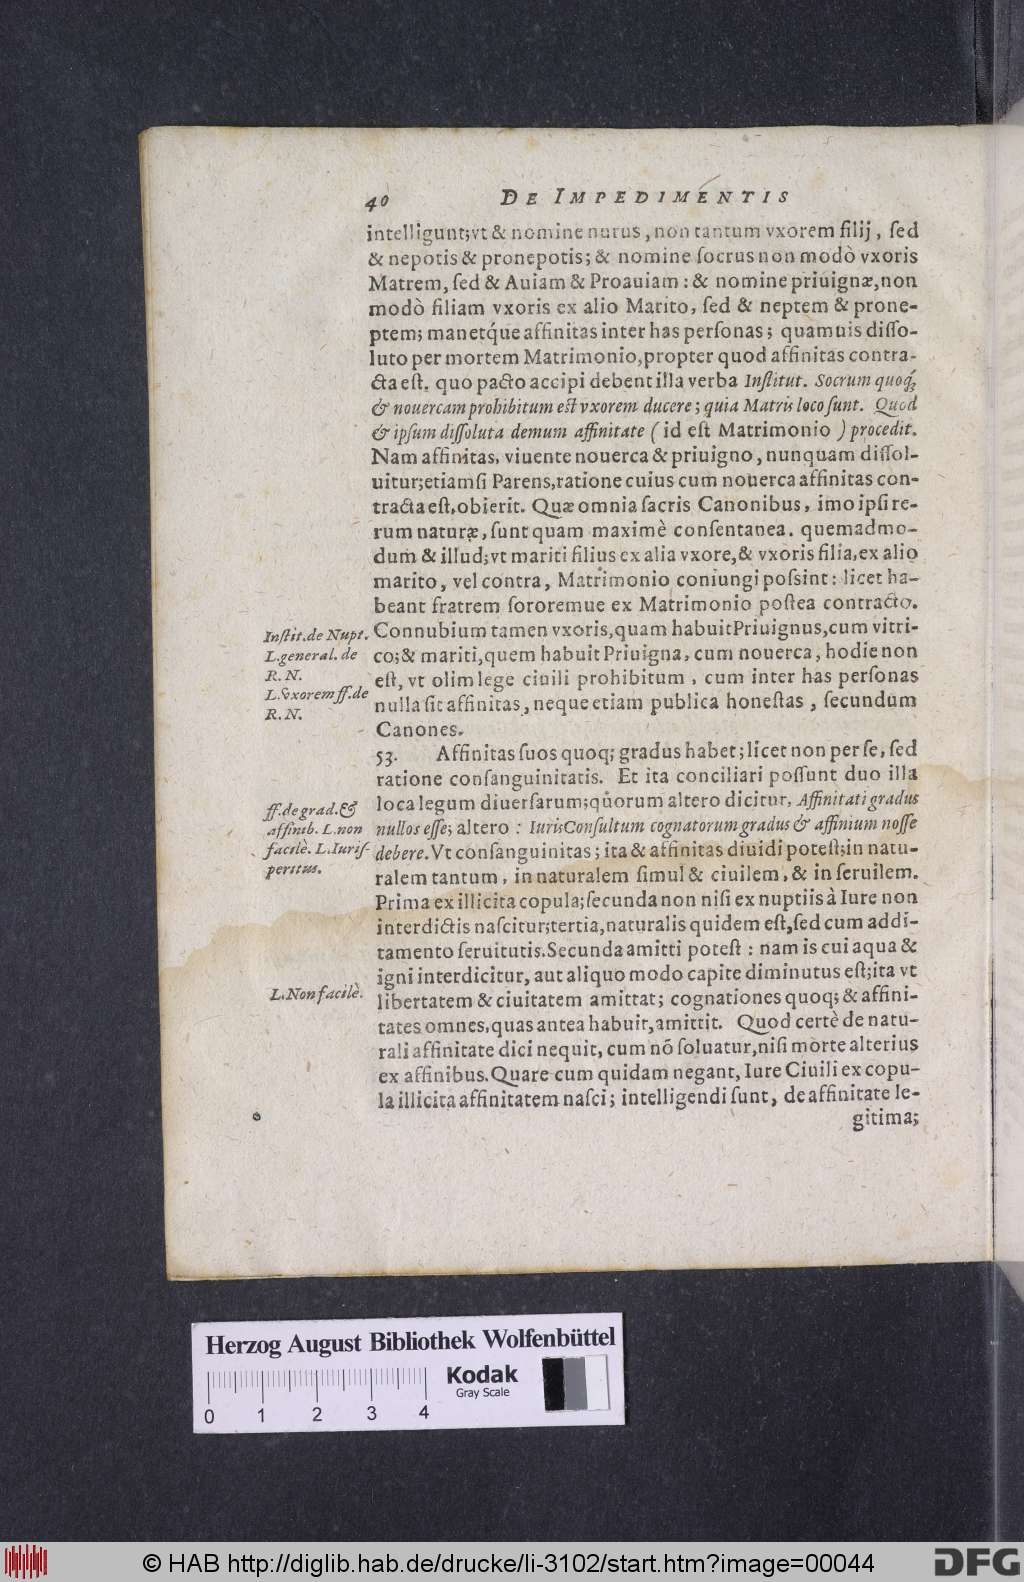 40 DE IMPEDIMENTIS
intelligunt; vt & nomine nurus, non tantum vxorem filij, ſed
& nepotis & pronepotis; & nomine ſocrus non modò vxoris
Matrem, ſed & Auiam & Proauiam: & nomine priuignæ, non
modò filiam vxoris ex alio Marito, ſed & neptem & prone-
ptem; manetq́ue affinitas inter has perſonas; quamuis diſſo-
luto per mortem Matrimonio, propter quod affinitas contra-
cta eſt. quo pacto accipi debent illa verba Inſtitut. Socrum quoq́;
& nouercam prohibitum eſt vxorem ducere; quia Matris loco ſunt. Quod
& ipſum diſſoluta demum affinitate (id eſt Matrimonio) procedit.
Nam affinitas, viuente nouerca & priuigno, nunquam diſſol-
uitur; etiamſi Parens, ratione cuius cum nouerca affinitas con-
tracta eſt, obierit. Quæ omnia ſacris Canonibus, imo ipſi re-
rum naturæ, ſunt quam maximè conſentanea. quemadmo-
dum & illud; vt mariti filius ex alia vxore, & vxoris filia, ex alio
marito, vel contra, Matrimonio coniungi poſsint: licet ha-
beant fratrem ſororemue ex Matrimonio poſtea contracto.
Connubium tamen vxoris, quam habuit Priuignus, cum vitri-
co; & mariti, quem habuit Priuigna, cum nouerca, hodie non
eſt, vt olim lege ciuili prohibitum, cum inter has perſonas
nulla ſit affinitas, neque etiam publica honeſtas, ſecundum
Canones.
Inſtit. de Nupt.
L. general. de
R. N.
L. vxorem ff. de
R. N.
53. Affinitas ſuos quoq; gradus habet; licet non per ſe, ſed
ratione conſanguinitatis. Et ita conciliari poſſunt duo illa
loca legum diuerſarum; quorum altero dicitur, Affinitati gradus
nullos eſſe; altero: IurisConſultum cognatorum gradus & affinium noſſe
debere. Vt conſanguinitas; ita & affinitas diuidi poteſt; in natu-
ralem tantum, in naturalem ſimul & ciuilem, & in ſeruilem.
Prima ex illicita copula; ſecunda non niſi ex nuptiis à Iure non
interdictis naſcitur; tertia, naturalis quidem eſt, ſed cum addi-
tamento ſeruitutis. Secunda amitti poteſt: nam is cui aqua &
igni interdicitur, aut aliquo modo capite diminutus eſt; ita vt
libertatem & ciuitatem amittat; cognationes quoq; & affini-
tates omnes, quas antea habuit, amittit. Quod certè de natu-
rali affinitate dici nequit, cum nõ ſoluatur, niſi morte alterius
ex affinibus. Quare cum quidam negant, Iure Ciuili ex copu-
la illicita affinitatem naſci; intelligendi ſunt, de affinitate le-
gitima;
ff. de grad. &
affinib. L. non
facilè. L. Iuriſ-
peritus.
L. Non facilè.
Herzog August Bibliothek Wolfenbüttel
Kodak
Gray Scale
0 1 2 3 4
© HAB http://diglib.hab.de/drucke/li-3102/start.htm?image=00044
DFG